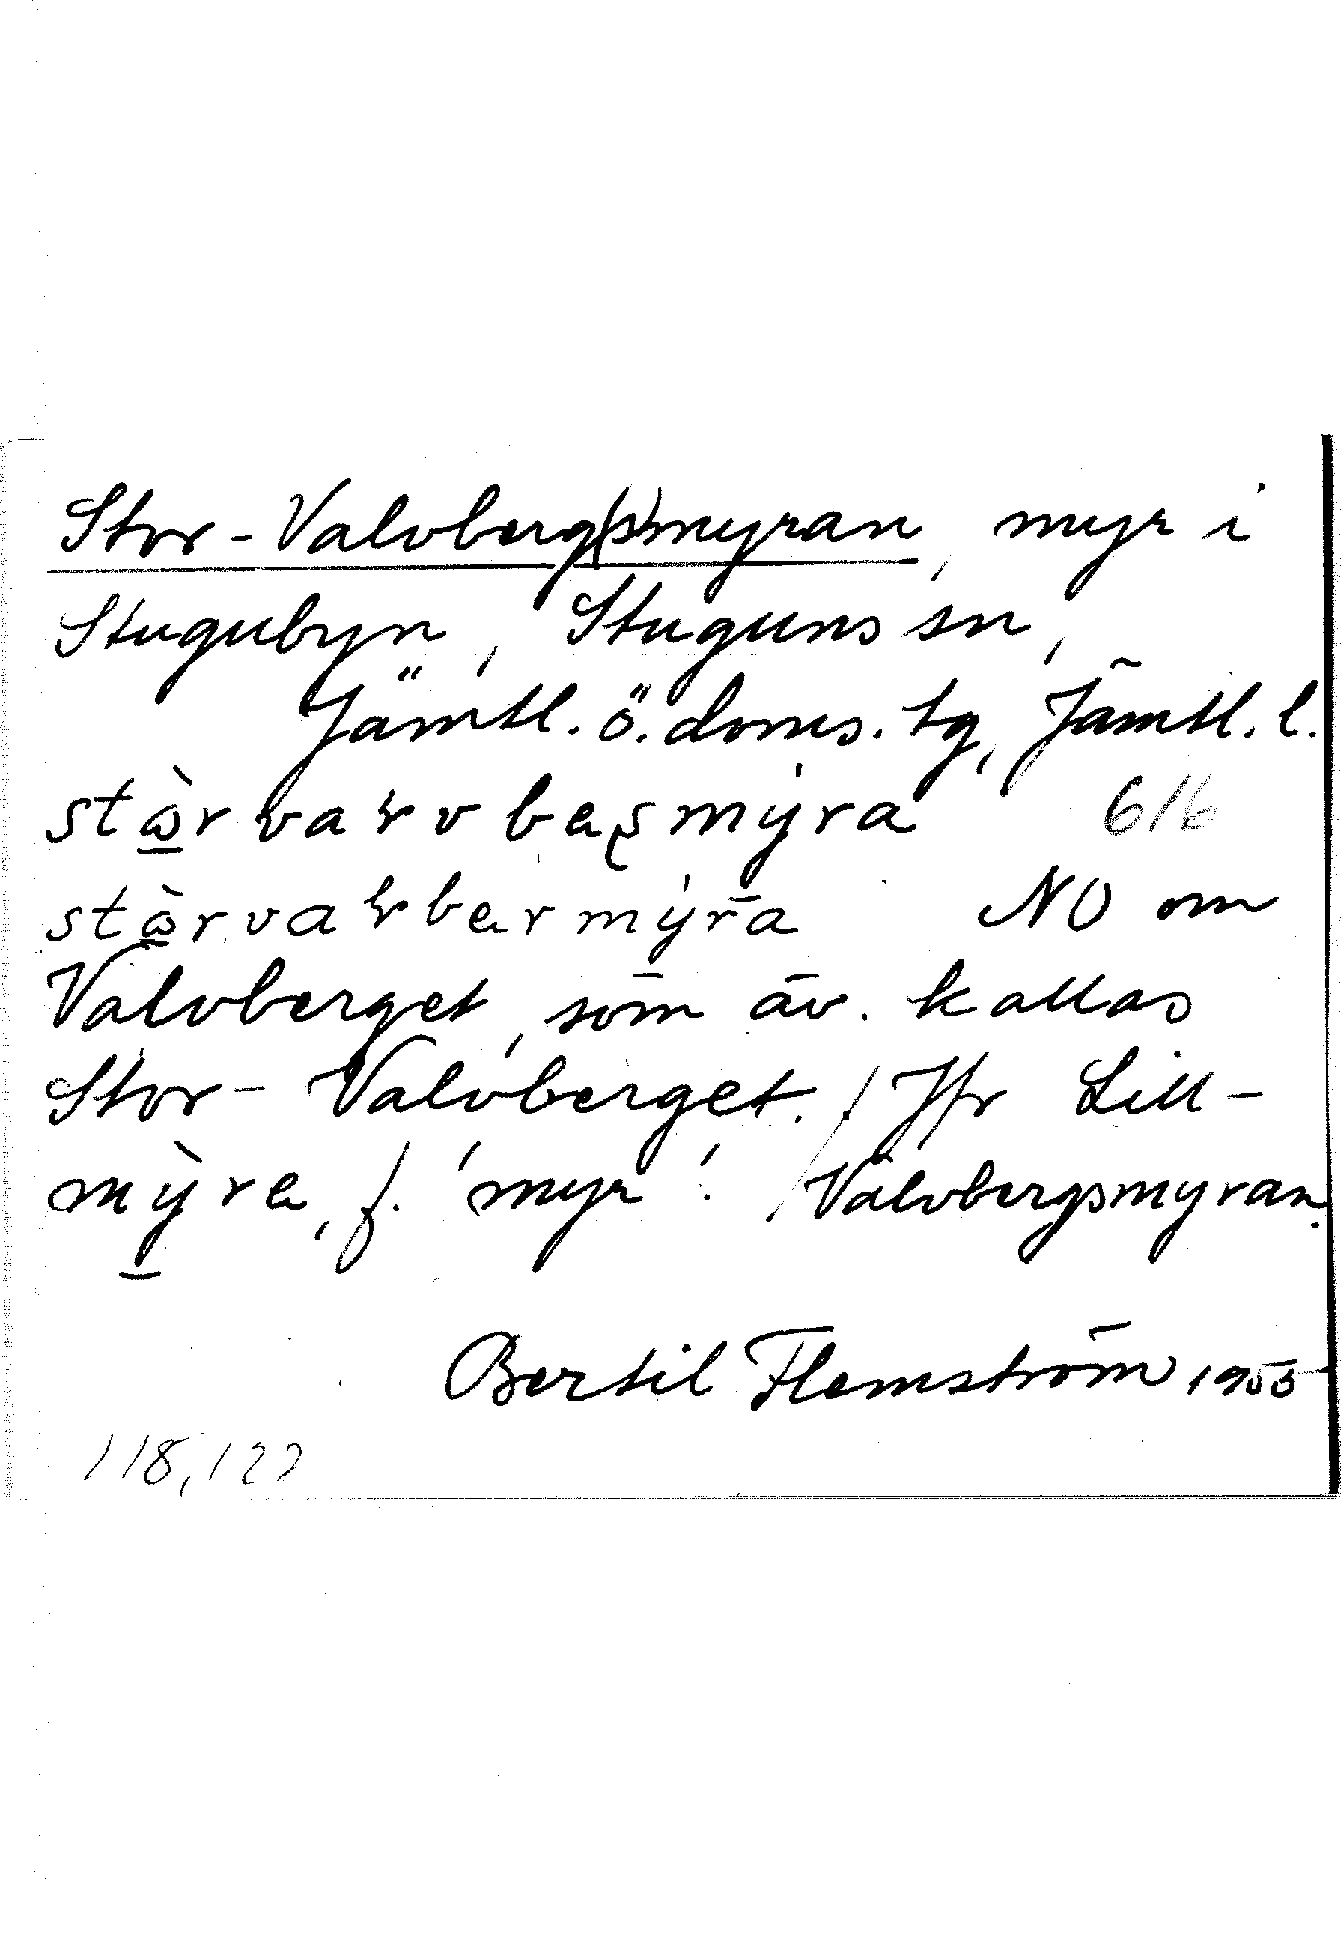 Stor-Valvberg(s)myran, myr i
Stugubyn, Stuguns sn,
Jämtl. ö. doms. tg, Jämtl. l.
616
NO om
Valvberget, som äv. kallas
Stor-Valvberget. / Jfr Lill-
mỳra, f. 'myr'. / Valvbergsmyran.
Bertil Flemström 1955
118,122